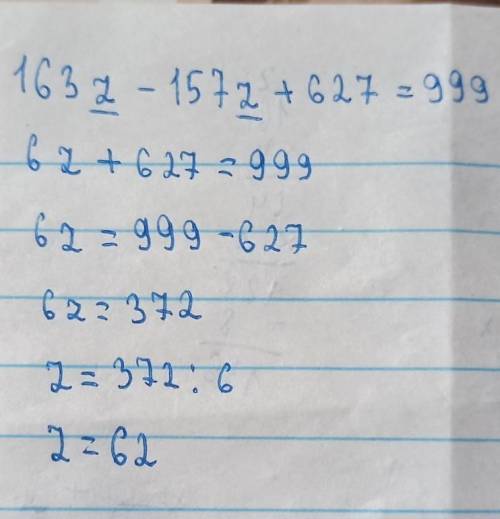 163z - 157z + 627 = 999
6z + 627 = 999
6z = 999 - 627
6z = 372
z = 372 : 6
z = 62